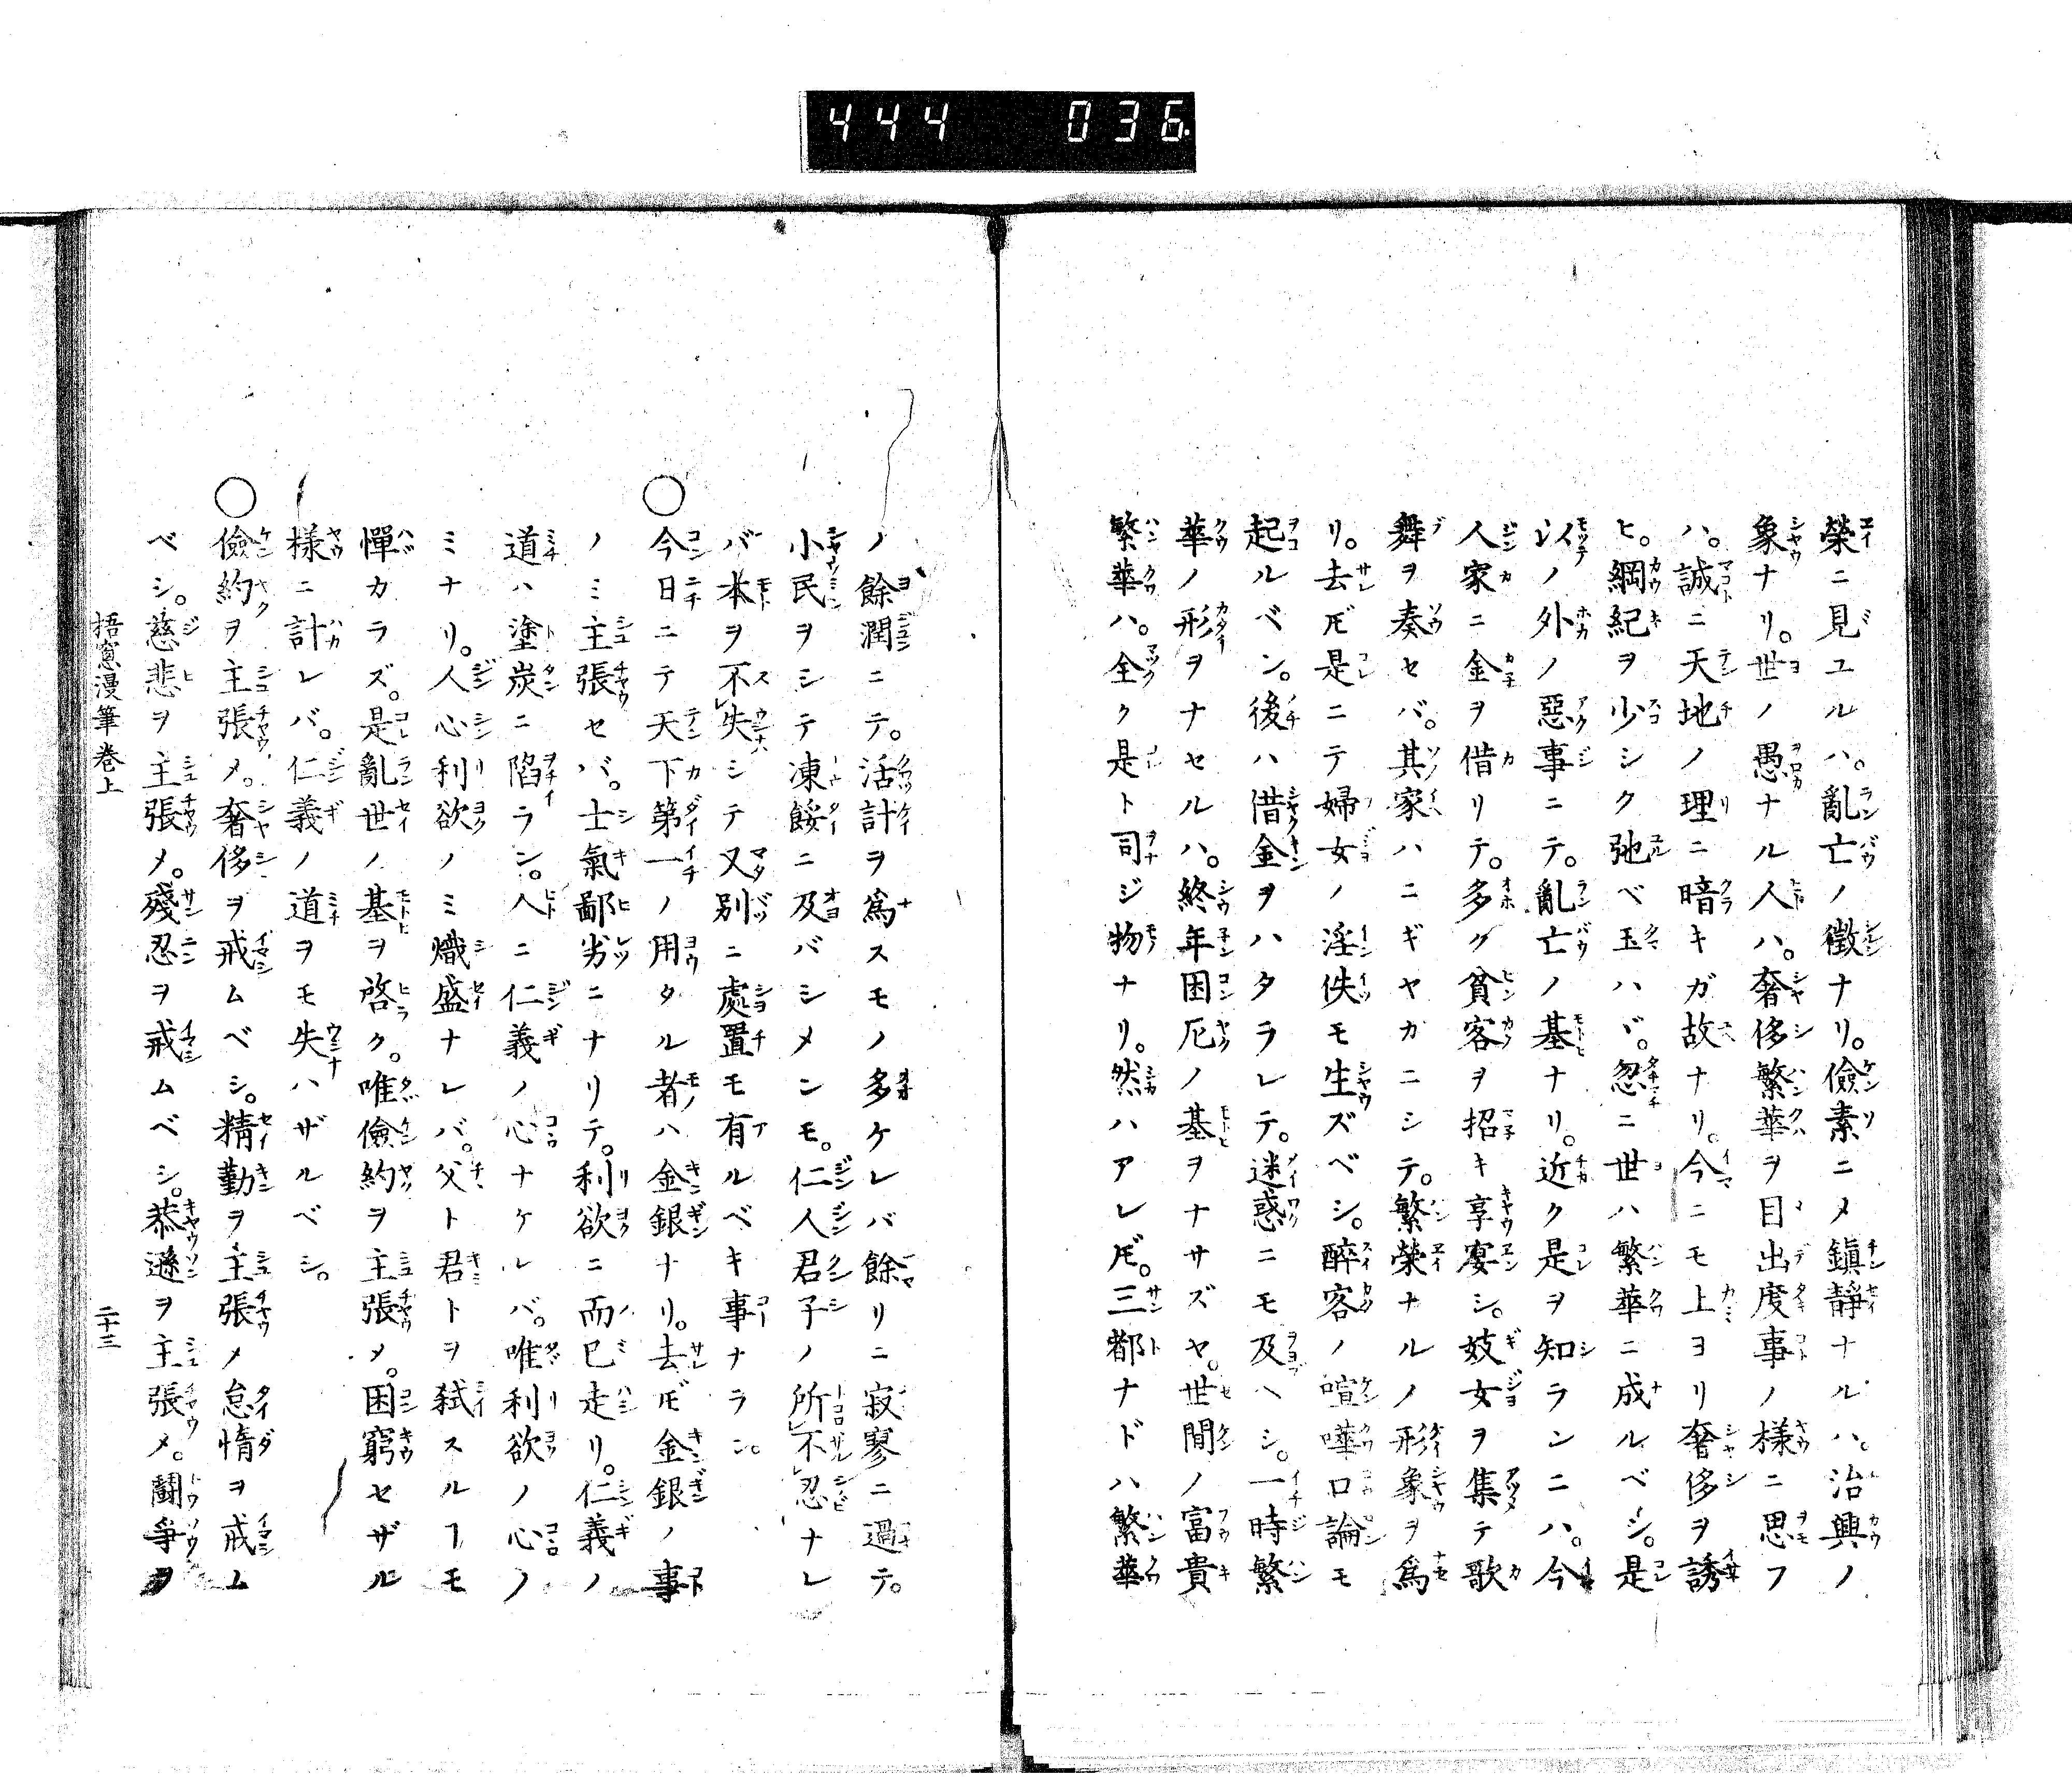 444 036
榮ニ見ユルハ。亂亡ノ徵ナリ。儉素ニメ鎭靜ナルハ。治興ノ
象ナリ。世ノ愚ナル人ハ。奢侈繁華ヲ目出度事ノ様ニ思フ
ハ。誠ニ天地ノ理ニ暗キガ故ナリ。今ニモ上ヨリ奢侈ヲ誘
ヒ。綱紀ヲ少シク弛ベ玉ハヾ。忽ニ世ハ繁華ニ成ルベシ。是
以ノ外ノ惡事ニテ。亂亡ノ基ナリ。近ク是ヲ知ランニハ。今
人家ニ金ヲ借リテ。多ク貧客ヲ招キ享宴シ。妓女ヲ集テ歌
舞ヲ奏セバ。其家ハニギヤカニシテ。繁榮ナルノ形象ヲ爲
リ。去𪜈是ニテ婦女ノ淫佚モ生ズベシ。醉客ノ喧嘩口論モ
起ルベシ。後ハ借金ヲハタラレテ。迷惑ニモ及ヘシ。一時繁
華ノ形ヲナセルハ。終年困厄ノ基ヲナサズヤ。世間ノ富貴
繁華ハ。全ク是ト司ジ物ナリ。然ハアレ𪜈。三都ナドハ繁華
ノ餘潤ニテ。活計ヲ爲スモノ多ケレバ餘リニ寂寥ニ過テ。
小民ヲシテ凍餒ニ及バシメンモ。仁人君子ノ所不忍ナレ
バ本ヲ不失シテ又別ニ處置モ有ルベキ事ナラン。
○今日ニテ天下第一ノ用タル者ハ金銀ナリ。去𪜈金銀ノ事
ノミ主張セバ。士氣鄙劣ニナリテ。利欲ニ而已走リ。仁義ノ
道ハ塗炭ニ陷ラン。人ニ仁義ノ心ナケレバ。唯利欲ノ心ノ
ミナリ。人心利欲ノミ熾盛ナレバ。父ト君トヲ弑スルヿモ
憚カラズ。是亂世ノ基ヲ啓ク。唯儉約ヲ主張メ。困窮セザル
樣ニ計レバ。仁義ノ道ヲモ失ハザルベシ。
○儉約ヲ主張メ。奢侈ヲ戒ムベシ。精勤ヲ主張メ怠惰ヲ戒ム
ベシ。慈悲ヲ主張メ。殘忍ヲ戒ムベシ。恭遜ヲ主張メ。鬪爭ヲ
梧窻漫筆卷上 二十三